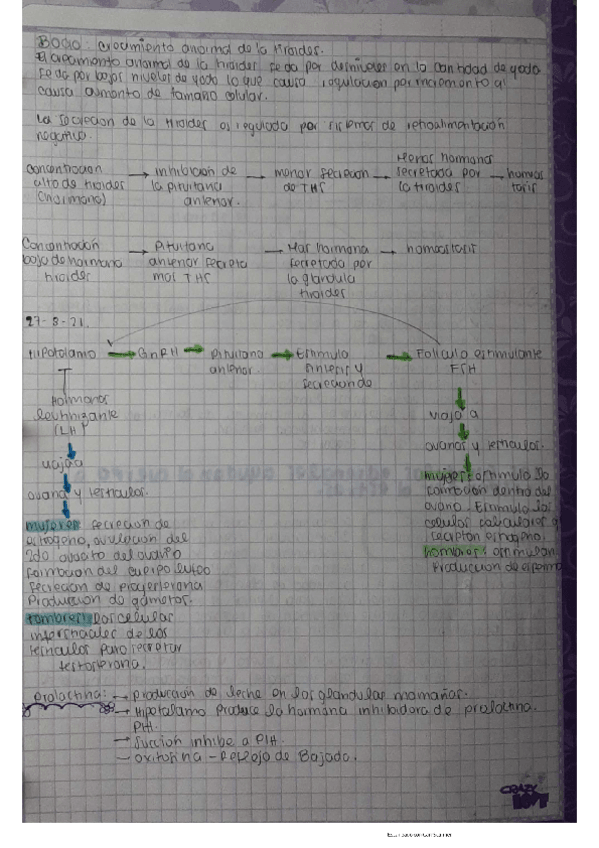 Bocio: crecimiento anormal de la tiroides.
El crecimiento anormal de la tiroides se da por desniveles en la cantidad de yodo
se da por bajos niveles de yodo lo que causa regulacion por incremento al
causa aumento de tamaño celular.
La secrecion de la tiroides es regulada por sistemas de retroalimentación
negativa.
Concentracion alta de tiroides (hormona) → inhibicion de la pituitaria anterior. → menor secrecion de THS → Menos hormona secretada por la tiroides → homeostasis
Concentración baja de hormona tiroides → Pituitaria anterior secreta mas THS → Mas hormona secretada por la glandula tiroides → homeostasis
27-8-21.
Hipotalamo → GnRH → Pituitaria anterior → Estimulo sintesis y secrecion de → Foliculo estimulante FSH
Hormonas
leutinizante
(LH)
viaja a
ovario y testiculos.
mujeres: secrecion de
estrogeno, ovulacion del
2do ovocito del ovario
formacion del cuerpo luteo
secrecion de progesterona
Produccion de gametos.
hombres: las celulas
intersticiales de los
testiculos para secretar
testosterona.
viaja a
ovarios y testiculos.
mujeres: estimula la
formacion dentro del
ovario. Estimula las
celulas foliculares a
estrogeno.
hombres: estimulan
Produccion de esperma
prolactina: → produccion de leche en las glandulas mamarias.
→ Hipotalamo Produce la hormona inhibidora de prolactina.
PHI.
→ Succion inhibe a PIH.
– oxitosina – Reflejo de Bajada.
CRAZY